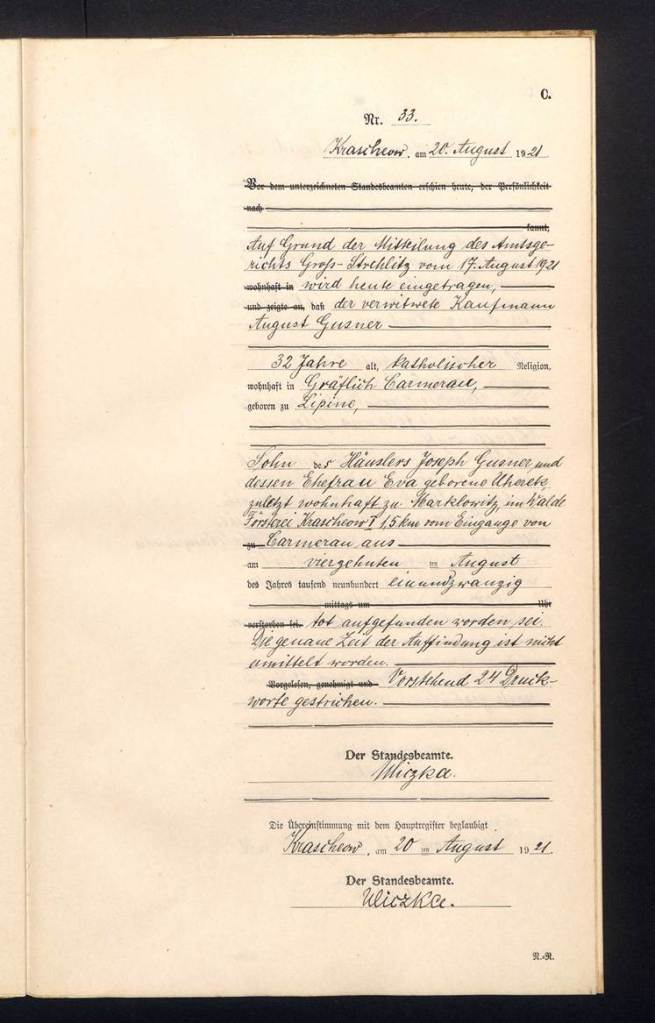 C.
Nr. 33.
Krascheow, am 20. August 1921
Vor dem unterzeichneten Standesbeamten erschien heute, der Persönlichkeit
nach
kannt,
Auf Grund der Mitteilung des Amtsge-
richts Groß-Strehlitz vom 17. August 1921
wohnhaft in wird heute eingetragen,
und zeigte an, daß der verwitwete Kaufmann
August Gusner
32 Jahre alt, katholischer Religion,
wohnhaft in Gräflich Carmerau,
geboren zu Lipine,
Sohn des Häuslers Joseph Gusner, und
dessen Ehefrau Eva geborene
zuletzt wohnhaft zu Marklowitz, im Walde
Försterei Krascheow I 1,5 km vom Eingange von
zu Carmerau aus
am vierzehnten im August
des Jahres tausend neunhundert einundzwanzig
mittags um Uhr
verstorben sei. tot aufgefunden worden sei.
Die genaue Zeit der Auffindung ist nicht
ermittelt worden.
Vorgelesen, genehmigt und Vorstehend 24 Druck-
worte gestrichen.
Der Standesbeamte.
Uliczka.
Die Übereinstimmung mit dem Hauptregister beglaubigt
Krascheow, am 20 im August 1921.
Der Standesbeamte.
Uliczka.
N.-N.